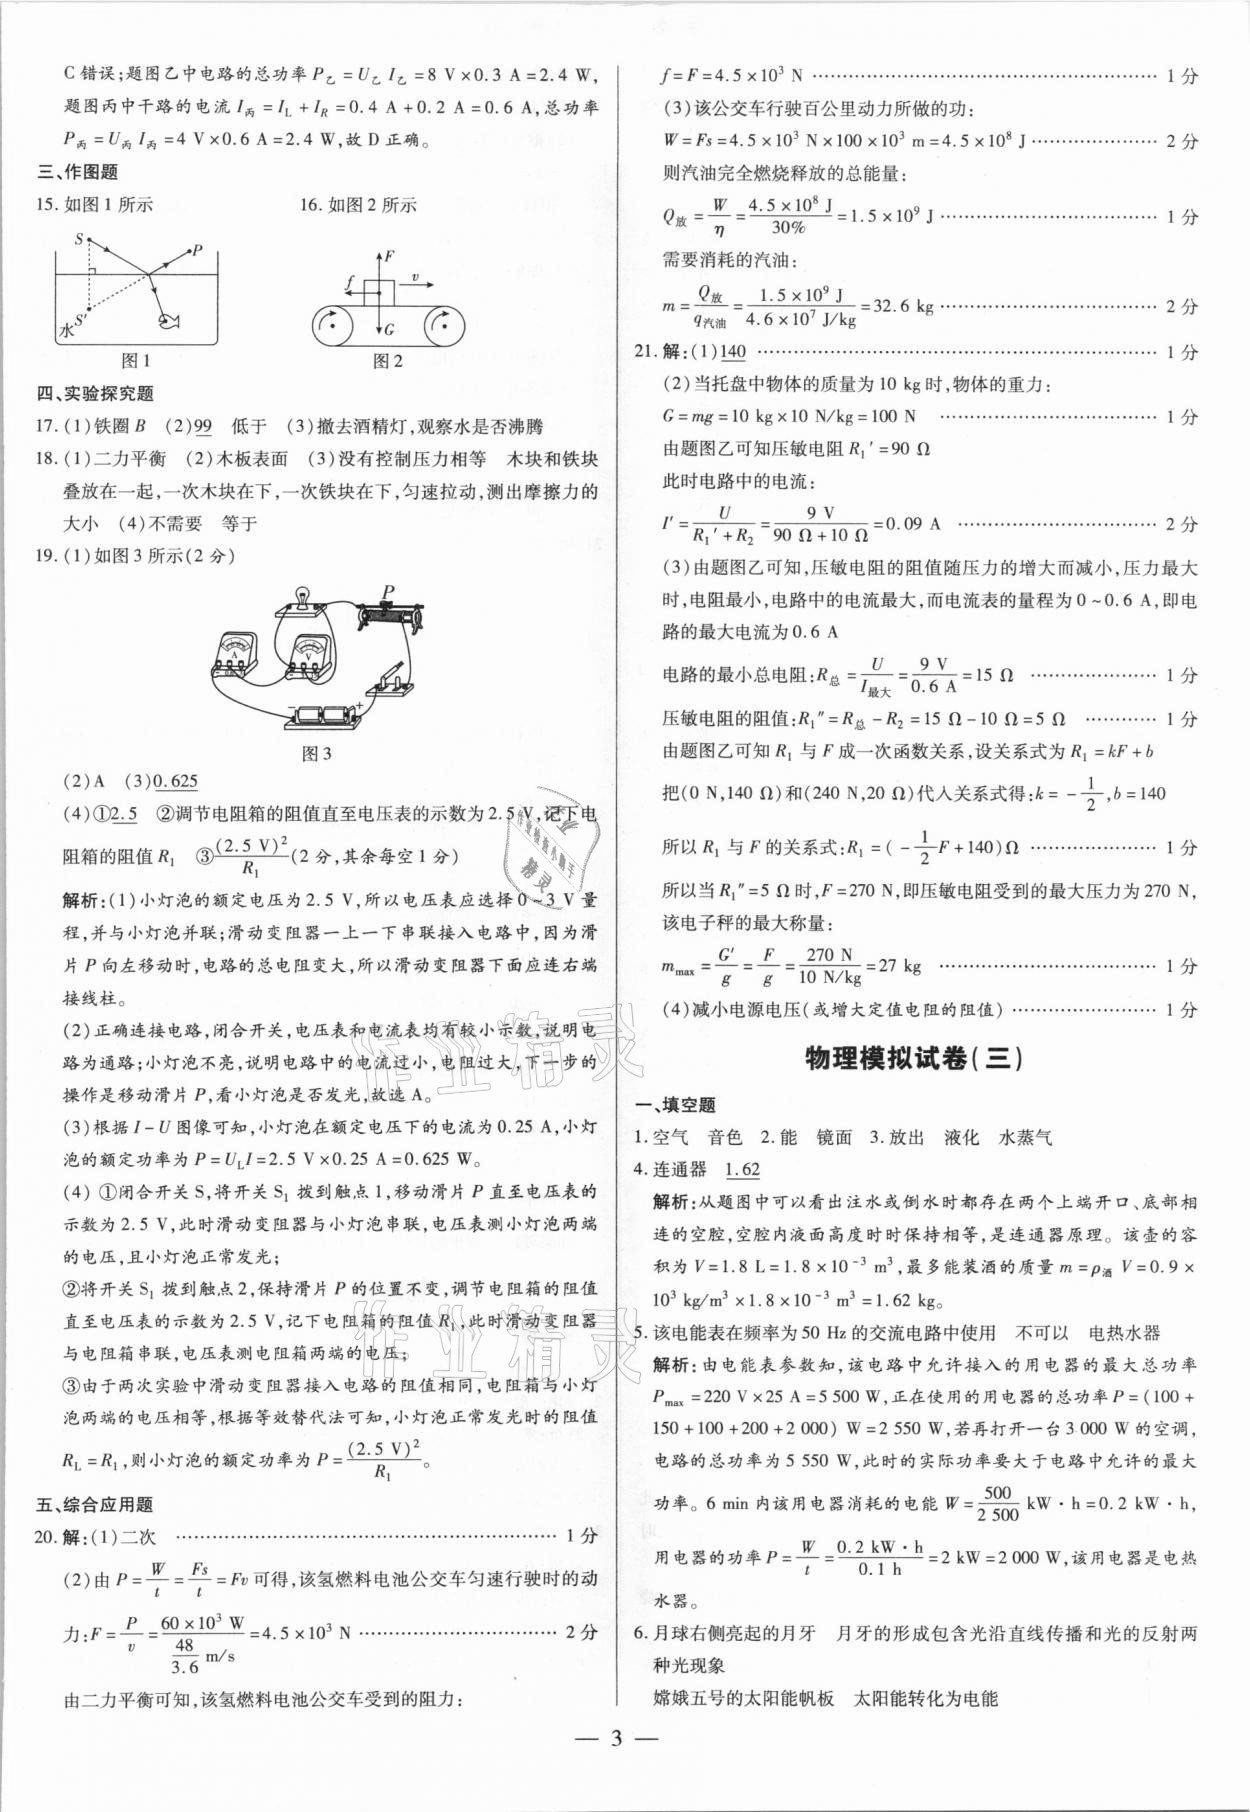 C 错误;题图乙中电路的总功率 P乙=U乙I乙=8 V×0.3 A=2.4 W,
题图丙中干路的电流 I丙=IL+IR=0.4 A+0.2 A=0.6 A,总功率
P丙=U丙I丙=4 V×0.6 A=2.4 W,故 D 正确。
三、作图题
15. 如图 1 所示 16. 如图 2 所示
S P S′ 水
F f v G
图 1 图 2
四、实验探究题
17. (1)铁圈 B (2)99 低于 (3)撤去酒精灯,观察水是否沸腾
18. (1)二力平衡 (2)木板表面 (3)没有控制压力相等 木块和铁块
叠放在一起,一次木块在下,一次铁块在下,匀速拉动,测出摩擦力的
大小 (4)不需要 等于
19. (1)如图 3 所示(2 分)
P
A V
− +
图 3
(2)A (3)0.625
(4)①2.5 ②调节电阻箱的阻值直至电压表的示数为 2.5 V,记下电
阻箱的阻值 R1 ③(2.5 V)²/R1(2 分,其余每空 1 分)
解析:(1)小灯泡的额定电压为 2.5 V,所以电压表应选择 0~3 V 量
程,并与小灯泡并联;滑动变阻器一上一下串联接入电路中,因为滑
片 P 向左移动时,电路的总电阻变大,所以滑动变阻器下面应连右端
接线柱。
(2)正确连接电路,闭合开关,电压表和电流表均有较小示数,说明电
路为通路;小灯泡不亮,说明电路中的电流过小,电阻过大,下一步的
操作是移动滑片 P,看小灯泡是否发光,故选 A。
(3)根据 I-U 图像可知,小灯泡在额定电压下的电流为 0.25 A,小灯
泡的额定功率为 P=ULI=2.5 V×0.25 A=0.625 W。
(4) ①闭合开关 S,将开关 S1 拨到触点 1,移动滑片 P 直至电压表的
示数为 2.5 V,此时滑动变阻器与小灯泡串联,电压表测小灯泡两端
的电压,且小灯泡正常发光;
②将开关 S1 拨到触点 2,保持滑片 P 的位置不变,调节电阻箱的阻值
直至电压表的示数为 2.5 V,记下电阻箱的阻值 R1,此时滑动变阻器
与电阻箱串联,电压表测电阻箱两端的电压;
③由于两次实验中滑动变阻器接入电路的阻值相同,电阻箱与小灯
泡两端的电压相等,根据等效替代法可知,小灯泡正常发光时的阻值
RL=R1,则小灯泡的额定功率为 P=(2.5 V)²/R1。
五、综合应用题
20. 解:(1)二次 …… 1 分
(2)由 P=W/t=Fs/t=Fv 可得,该氢燃料电池公交车匀速行驶时的动
力:F=P/v=60×10³ W/(48/3.6 m/s)=4.5×10³ N …… 2 分
由二力平衡可知,该氢燃料电池公交车受到的阻力:
f=F=4.5×10³ N …… 1 分
(3)该公交车行驶百公里动力所做的功:
W=Fs=4.5×10³ N×100×10³ m=4.5×10⁸ J …… 2 分
则汽油完全燃烧释放的总能量:
Q放=W/η=4.5×10⁸ J/30%=1.5×10⁹ J …… 1 分
需要消耗的汽油:
m=Q放/q汽油=1.5×10⁹ J/4.6×10⁷ J/kg=32.6 kg …… 2 分
21. 解:(1)140 …… 1 分
(2)当托盘中物体的质量为 10 kg 时,物体的重力:
G=mg=10 kg×10 N/kg=100 N …… 1 分
由题图乙可知压敏电阻 R1′=90 Ω
此时电路中的电流:
I′=U/(R1′+R2)=9 V/(90 Ω+10 Ω)=0.09 A …… 2 分
(3)由题图乙可知,压敏电阻的阻值随压力的增大而减小,压力最大
时,电阻最小,电路中的电流最大,而电流表的量程为 0~0.6 A,即电
路的最大电流为 0.6 A
电路的最小总电阻:R总=U/I最大=9 V/0.6 A=15 Ω …… 1 分
压敏电阻的阻值:R1″=R总-R2=15 Ω-10 Ω=5 Ω …… 1 分
由题图乙可知 R1 与 F 成一次函数关系,设关系式为 R1=kF+b
把(0 N,140 Ω)和(240 N,20 Ω)代入关系式得:k=-1/2,b=140
所以 R1 与 F 的关系式:R1=(-1/2F+140)Ω …… 1 分
所以当 R1″=5 Ω 时,F=270 N,即压敏电阻受到的最大压力为 270 N,
该电子秤的最大称量:
mmax=G′/g=F/g=270 N/10 N/kg=27 kg …… 1 分
(4)减小电源电压(或增大定值电阻的阻值) …… 1 分
物理模拟试卷(三)
一、填空题
1. 空气 音色 2. 能 镜面 3. 放出 液化 水蒸气
4. 连通器 1.62
解析:从题图中可以看出注水或倒水时都存在两个上端开口、底部相
连的空腔,空腔内液面高度时时保持相等,是连通器原理。该壶的容
积为 V=1.8 L=1.8×10⁻³ m³,最多能装酒的质量 m=ρ酒V=0.9×
10³ kg/m³×1.8×10⁻³ m³=1.62 kg。
5. 该电能表在频率为 50 Hz 的交流电路中使用 不可以 电热水器
解析:由电能表参数知,该电路中允许接入的用电器的最大总功率
Pmax=220 V×25 A=5 500 W,正在使用的用电器的总功率 P=(100+
150+100+200+2 000) W=2 550 W,若再打开一台 3 000 W 的空调,
电路的总功率为 5 550 W,此时的实际功率要大于电路中允许的最大
功率。6 min 内该用电器消耗的电能 W=500/2 500 kW·h=0.2 kW·h,
用电器的功率 P=W/t=0.2 kW·h/0.1 h=2 kW=2 000 W,该用电器是电热
水器。
6. 月球右侧亮起的月牙 月牙的形成包含光沿直线传播和光的反射两
种光现象
嫦娥五号的太阳能帆板 太阳能转化为电能
— 3 —
作业精灵
作业精灵